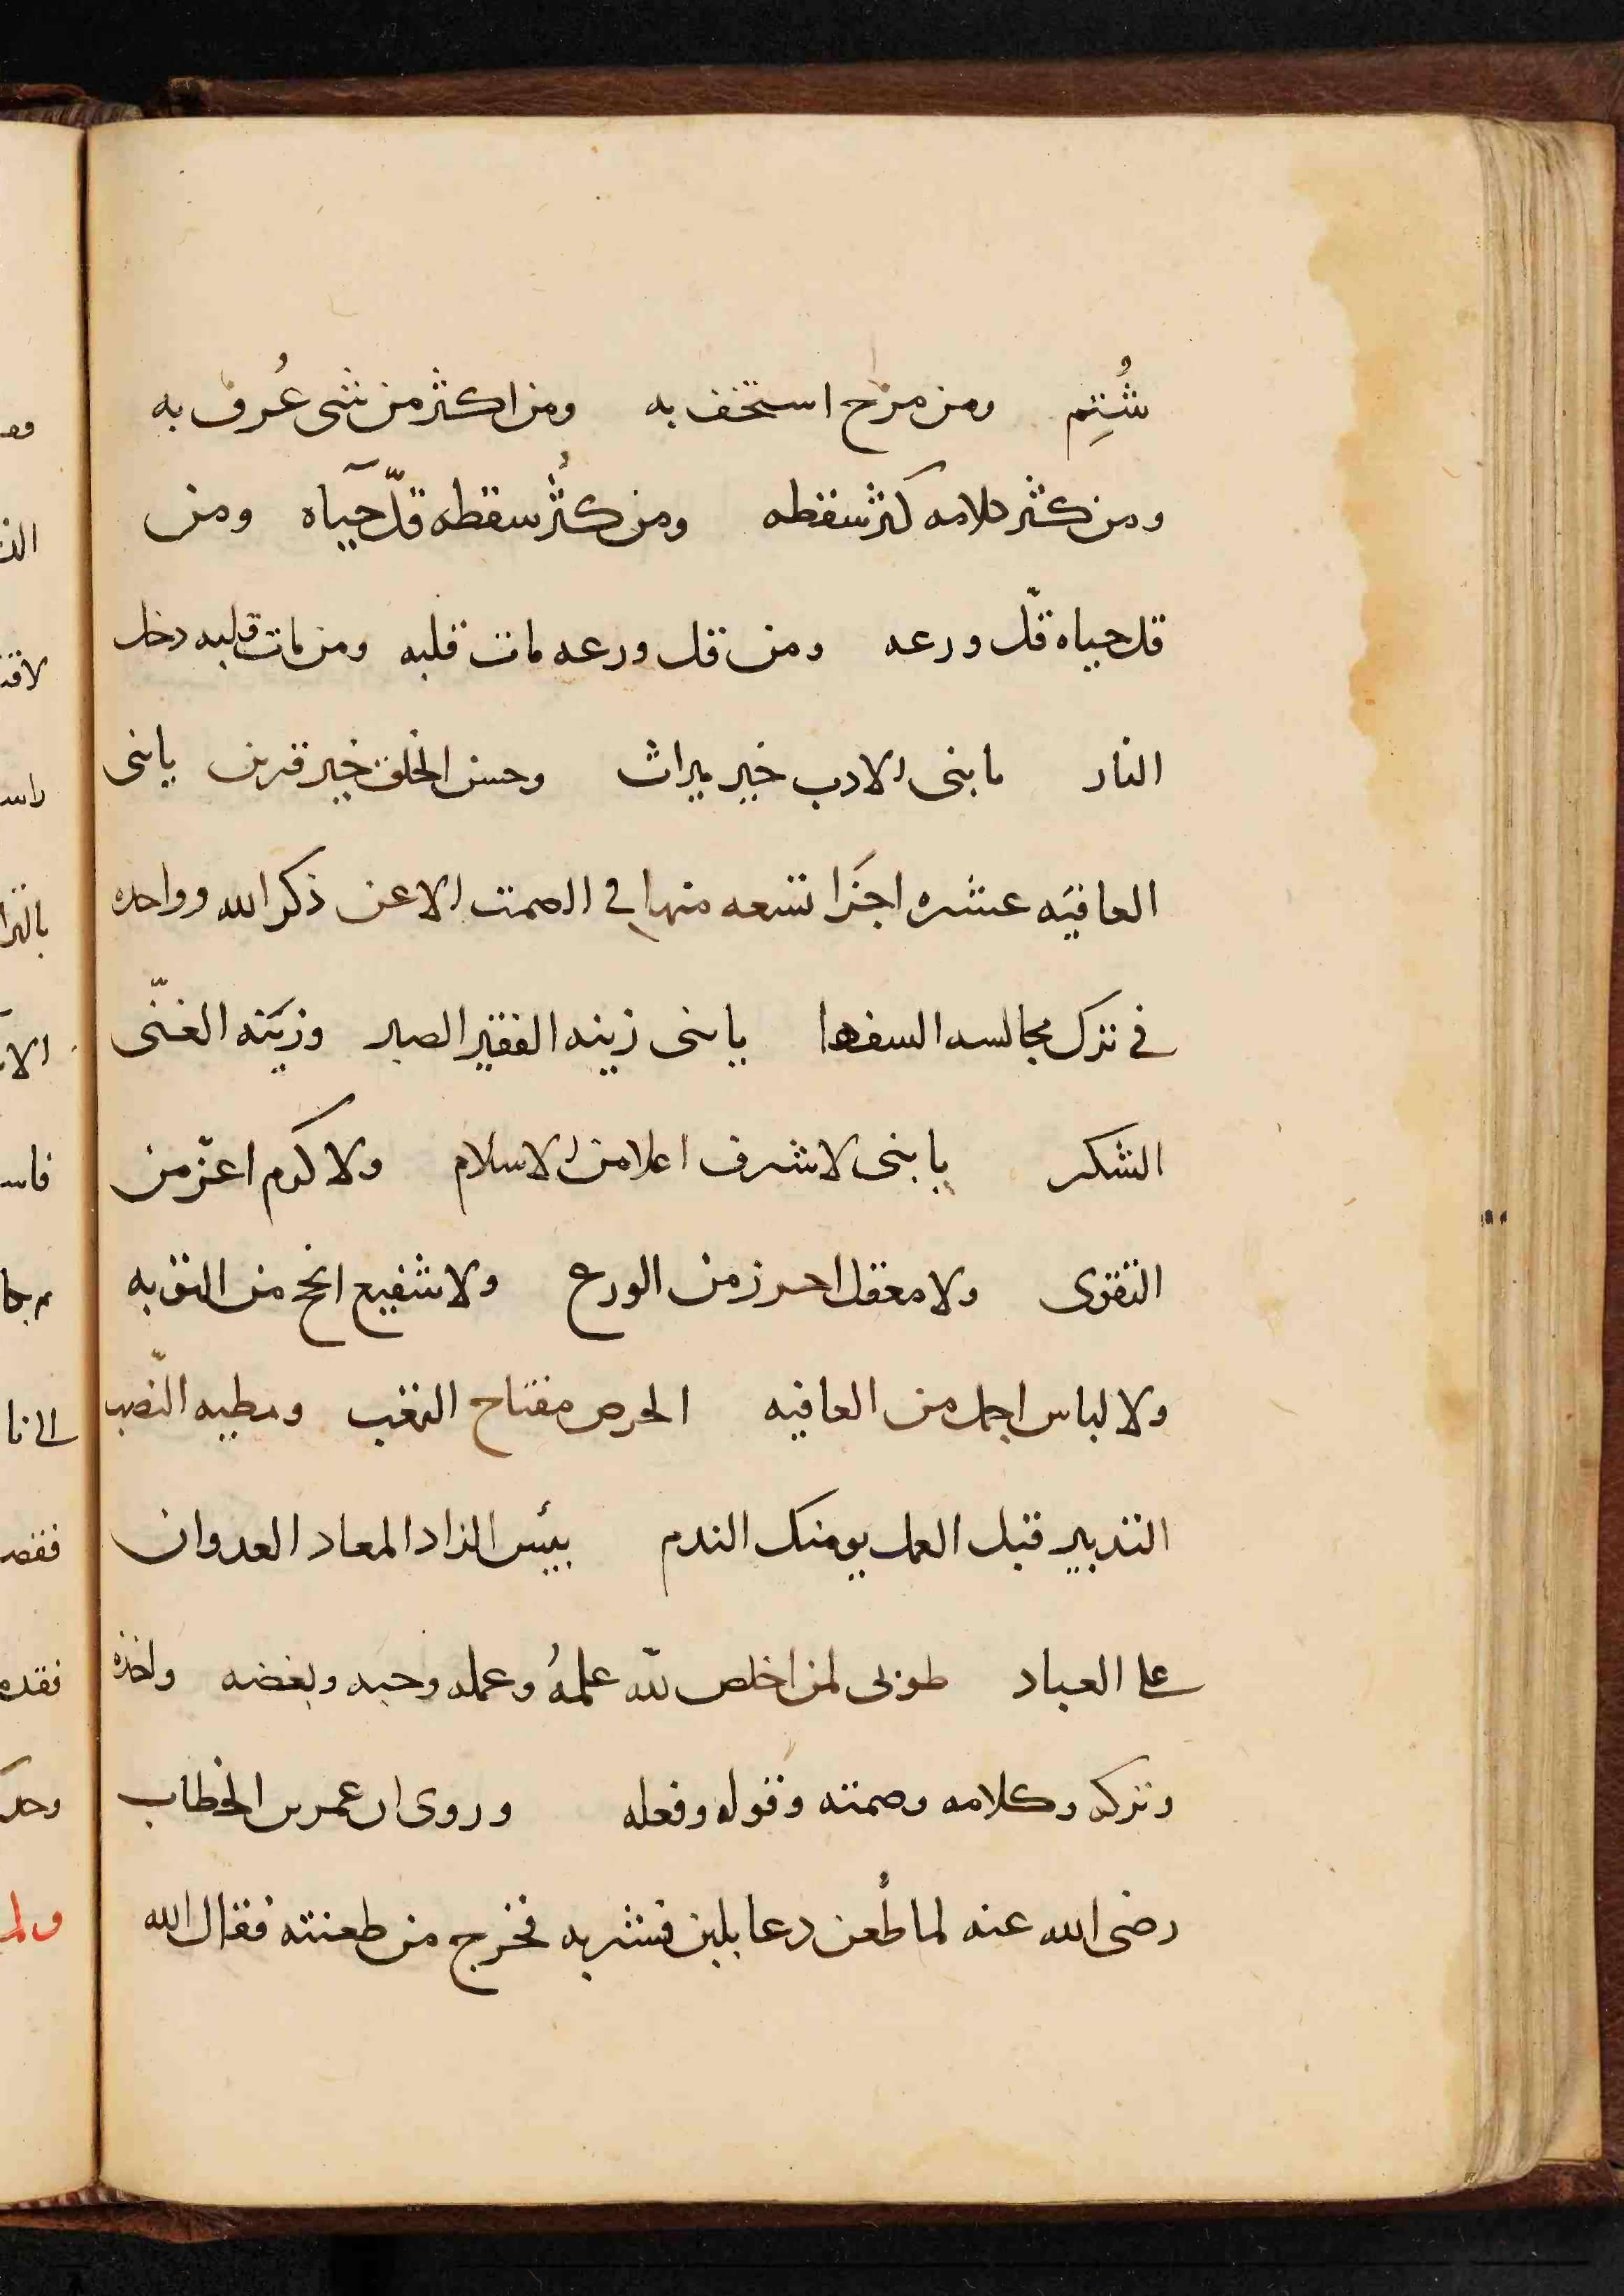 شُتِم ومن مزح استخف به ومن اكثر من شى عُرف به
ومن كثر كلامه كثر سقطه ومن كثُر سقطه قلّ حيآه ومن
قل حياه قلّ ورعه ومن قل ورعه مات قلبه ومن مات قلبه دخل
النار يا بنى الادب خير ميراث وحسن الخلق خير قرين يا بنى
العافيه عشره اجزا تسعه منها في الصمت الا عن ذكر الله وواحده
في ترك مجالسه السفها يا بنى زينه الفقير الصبر وزينه الغنّى
الشكر يا بنى لا شرف اعلا من الاسلام ولا كرم اعزّ من
التقوى ولا معقل احرز من الورع ولا شفيع انجح من التوبه
ولا لباس اجمل من العافيه الحرص مفتاح التعب ومطيه النّصب
التدبير قبل العمل يومنك الندم بيئس الزاد المعاد العدوان
على العباد طوبى لمن اخلص لله علمهُ وعمله وحبه وبغضه واخذه
وتركه وكلامه وصمته وقوله وفعله وروى ان عمر بن الخطاب
رضى الله عنه لما طُعن دعا بلبن فشربه فخرج من طعنته فقال الله